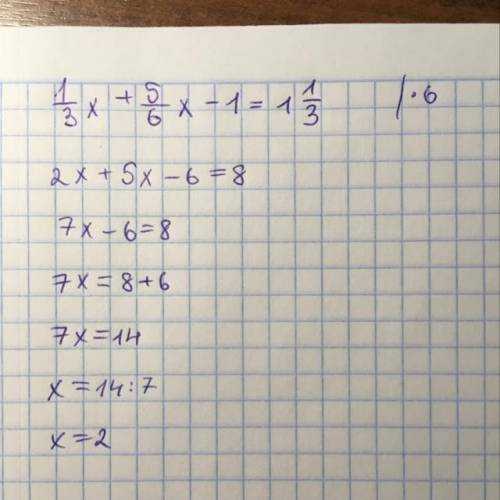 1/3 x + 5/6 x - 1 = 1 1/3 | · 6
2x + 5x - 6 = 8
7x - 6 = 8
7x = 8 + 6
7x = 14
x = 14 : 7
x = 2